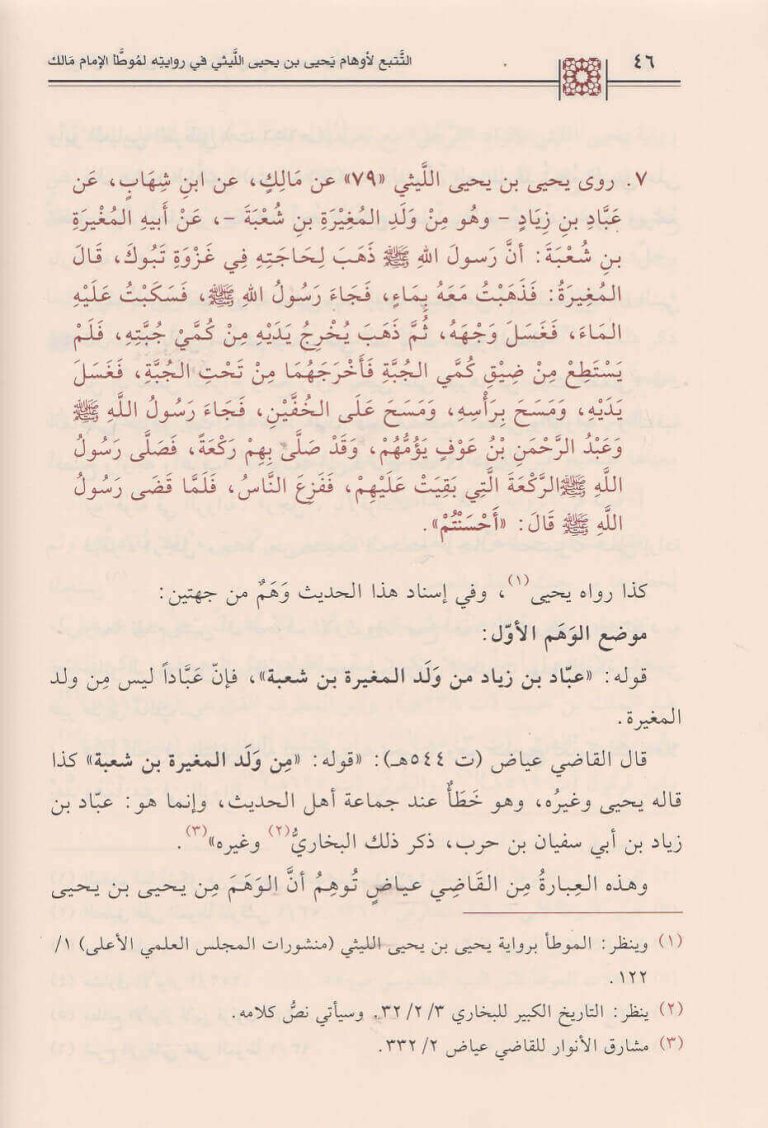 ٤٦
التَّتبع لأوهام يَحيى بن يحيى اللَّيثي في روايتِه لمُوطَّأ الإمام مَالك
٧. روى يحيى بن يحيى اللَّيثي «٧٩» عن مَالِكٍ، عن ابنِ شِهَابٍ، عَن
عَبَّادِ بنِ زِيَادٍ - وهُو مِنْ وَلَدِ المُغِيْرَةِ بنِ شُعْبَةَ -، عَنْ أَبيهِ المُغْيرَةِ
بنِ شُعْبَةَ: أنَّ رَسولَ اللهِ ﷺ ذَهَبَ لِحَاجَتِهِ فِي غَزْوَةِ تَبُوكَ، قَالَ
المُغِيرَةُ: فَذَهَبْتُ مَعَهُ بِمَاءٍ، فَجَاءَ رَسُولُ اللهِ ﷺ، فَسَكَبْتُ عَلَيْهِ
المَاءَ، فَغَسَلَ وَجْهَهُ، ثُمَّ ذَهَبَ يُخْرِجُ يَدَيْهِ مِنْ كُمَّيْ جُبَّتِهِ، فَلَمْ
يَسْتَطِعْ مِنْ ضِيْقِ كُمَّي الجُبَّةِ فَأَخْرَجَهُمَا مِنْ تَحْتِ الجُبَّةِ، فَغَسَلَ
يَدَيْهِ، وَمَسَحَ بِرَأْسِهِ، وَمَسَحَ عَلَى الخُفَّيْنِ، فَجَاءَ رَسُولُ اللَّهِ ﷺ
وَعَبْدُ الرَّحْمَنِ بْنُ عَوْفٍ يَؤُمُّهُمْ، وَقَدْ صَلَّىْ بِهِمْ رَكْعَةً، فَصَلَّى رَسُولُ
اللَّهِ ﷺ الرَّكْعَةَ الَّتِي بَقِيَتْ عَلَيْهِمْ، فَفَزِعَ النَّاسُ، فَلَمَّا قَضَى رَسُولُ
اللَّهِ ﷺ قَالَ: «أَحْسَنْتُمْ».
كذا رواه يحيى(١)، وفي إسناد هذا الحديث وَهَمٌ من جهتين:
موضع الوَهَم الأوّل:
قوله: «عبّاد بن زياد من وَلَد المغيرة بن شعبة»، فإنّ عَبَّاداً ليس مِن ولد
المغيرة.
قال القاضي عياض (ت ٥٤٤هـ): «قوله: «مِن وَلَد المغيرة بن شعبة» كذا
قاله يحيى وغيرُه، وهو خَطَأٌ عند جماعة أهل الحديث، وإنما هو: عبّاد بن
زياد بن أبي سفيان بن حرب، ذكر ذلك البخاريُّ(٢) وغيره»(٣).
وهذه العِبارةُ مِن القَاضِي عياضٍ تُوهِمُ أنَّ الوَهَمَ مِن يحيى بن يحيى
(١) وينظر: الموطأ برواية يحيى بن يحيى الليثي (منشورات المجلس العلمي الأعلى) ١/
١٢٢.
(٢) ينظر: التاريخ الكبير للبخاري ٣/ ٢/ ٣٢. وسيأتي نصُّ كلامه.
(٣) مشارق الأنوار للقاضي عياض ٢/ ٣٣٢.